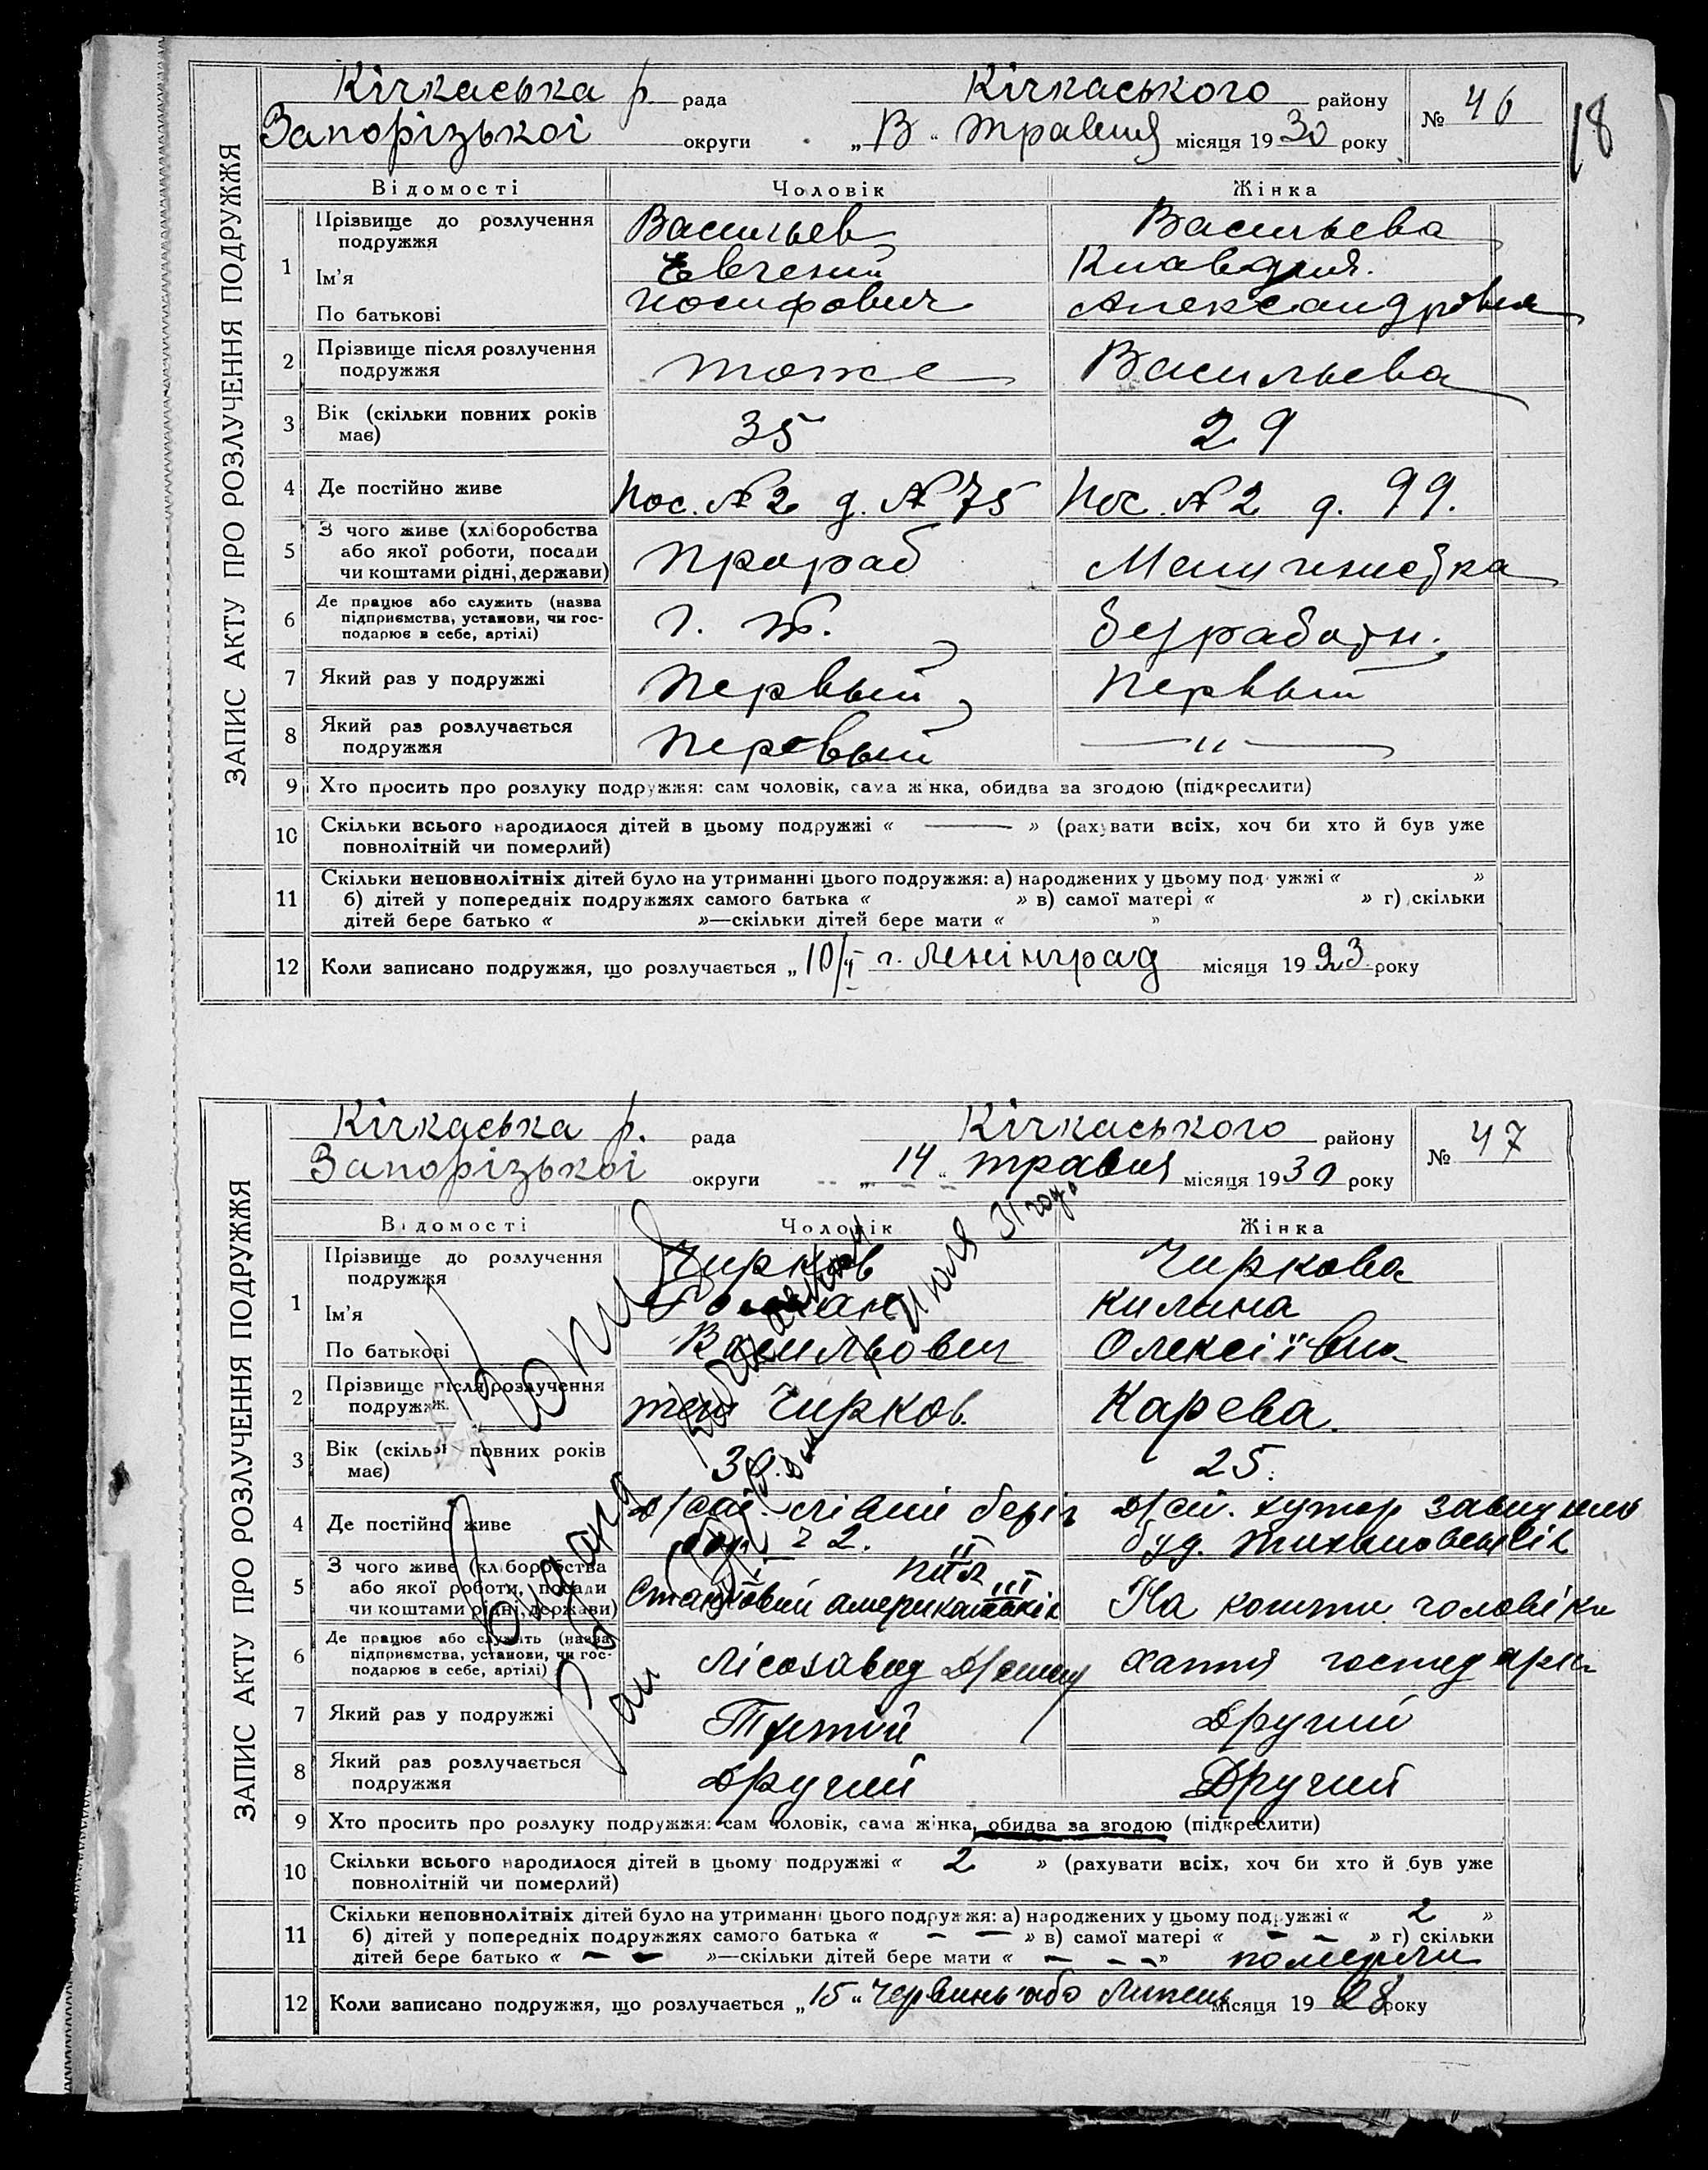 Кічкаська р. рада Кічкаського району № 46
18
Запорізької округи „ 13 " травня місяця 1930 року
ЗАПИС АКТУ ПРО РОЗЛУЧЕННЯ ПОДРУЖЖЯ
Відомості Чоловік Жінка
1 Прізвище до розлучення подружжя Васильев Васильева
Ім'я Евгений Клавдия.
По батькові Иосифович Александровна
2 Прізвище після розлучення подружжя тоже Васильева
3 Вік (скільки повних років має) 35 29
4 Де постійно живе Пос. №2 д. №75 Пос. №2 д. 99.
5 З чого живе (хліборобства
або якої роботи, посади
чи коштами рідні, держави) Прораб Машинистка
6 Де працює або служить (назва
підприємства, установи, чи гос-
подарює в себе, артілі) безработн.
7 Який раз у подружжі Первый Первый
8 Який раз розлучається подружжя Первый — " —
9 Хто просить про розлуку подружжя: сам чоловік, сама жінка, обидва за згодою (підкреслити)
10 Скільки всього народилося дітей в цьому подружжі « — » (рахувати всіх, хоч би хто й був уже
повнолітній чи померлий)
11 Скільки неповнолітніх дітей було на утриманні цього подружжя: а) народжених у цьому подружжі « »
б) дітей у попередніх подружжях самого батька « » в) самої матері « » г) скільки
дітей бере батько « »—скільки дітей бере мати « »
12 Коли записано подружжя, що розлучається „ 10/V г. Ленінград місяця 1923 року
Кічкаська р. рада Кічкаського району № 47
Запорізької округи „ 14 " травня місяця 1930 року
ЗАПИС АКТУ ПРО РОЗЛУЧЕННЯ ПОДРУЖЖЯ
Відомості Чоловік Жінка
1 Прізвище до розлучення подружжя Чирков Чиркова
Ім'я Роман Килина
По батькові Васильович Олексіївна
2 Прізвище після розлучення подружж. теж Чирков. Карева.
3 Вік (скільки повних років має) 30. 25.
4 Де постійно живе лівий беріг хутор
№ 2. буд.
5 З чого живе (хліборобства
або якої роботи, посади
чи коштами рідні, держави) На кошти чоловіка
6 Де працює або служить (назва
підприємства, установи, чи гос-
подарює в себе, артілі) Лісозавод хатня господарка
7 Який раз у подружжі Третій Другий
8 Який раз розлучається подружжя Другий Другий
9 Хто просить про розлуку подружжя: сам чоловік, сама жінка, обидва за згодою (підкреслити)
10 Скільки всього народилося дітей в цьому подружжі « 2 » (рахувати всіх, хоч би хто й був уже
повнолітній чи померлий)
11 Скільки неповнолітніх дітей було на утриманні цього подружжя: а) народжених у цьому подружжі « 2 »
б) дітей у попередніх подружжях самого батька « — — » в) самої матері « — — » г) скільки
дітей бере батько « — — »—скільки дітей бере мати « — — — » померли
12 Коли записано подружжя, що розлучається „ 15 " Червень або Липень місяця 1928 року
Копия
Выдана
июля 31 года